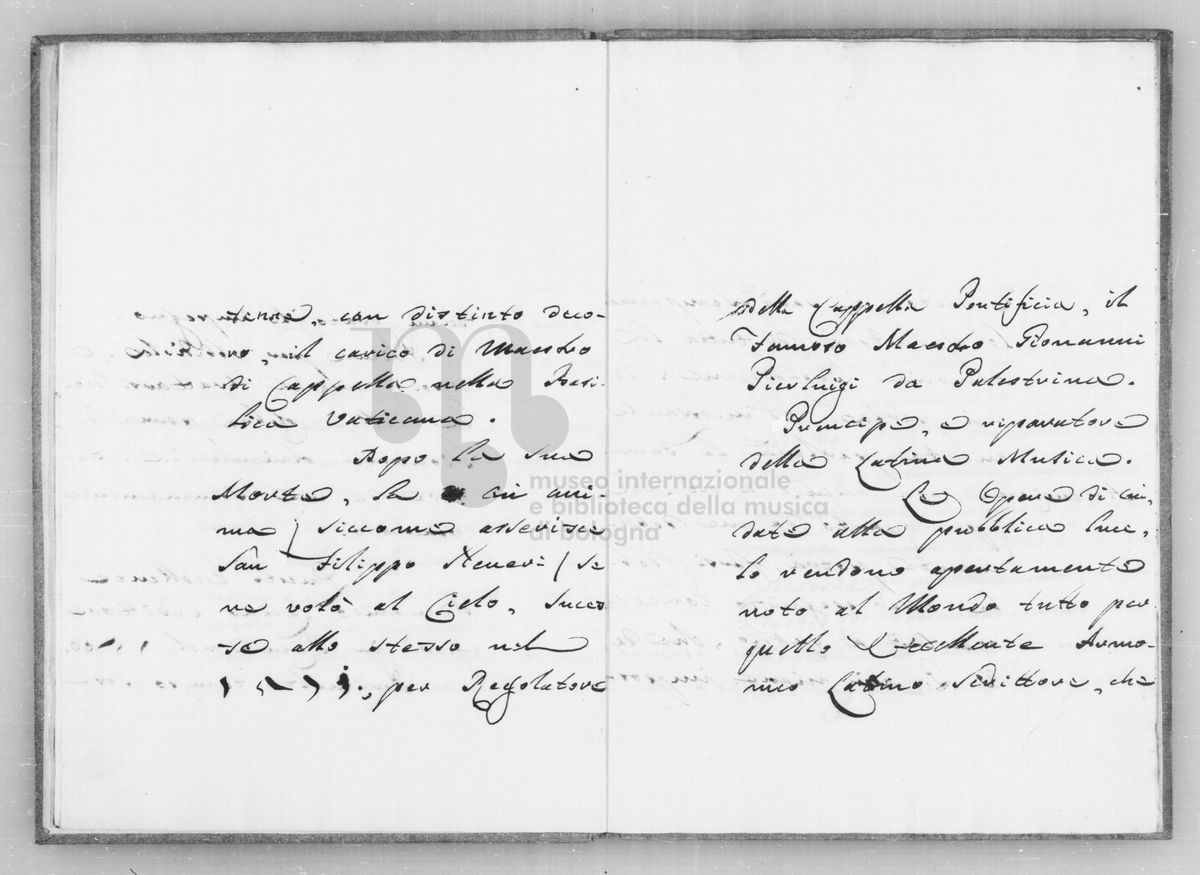 tenne, con distinto deco-
ro, il carico di Maestro
di Cappella nella Basi-
lica Vaticana.
Dopo la sua
Morte, la cui ani-
ma / siccome asserisce
San Filippo Neneri / se
ne volò al Cielo, succes
se allo stesso nel
per Regolatore
della Cappella Pontificia, il
Famoso Maestro Giovanni
Pierluigi da Palestrina.
Principe, e riparatore
della Latina Musica.
Le Opere di cui,
date alla pubblica luce,
lo rendono apertamente
noto al Mondo tutto per
quello Eccellente Armo-
nico Latino Scrittore, che
museo internazionale
e biblioteca della musica
di bologna